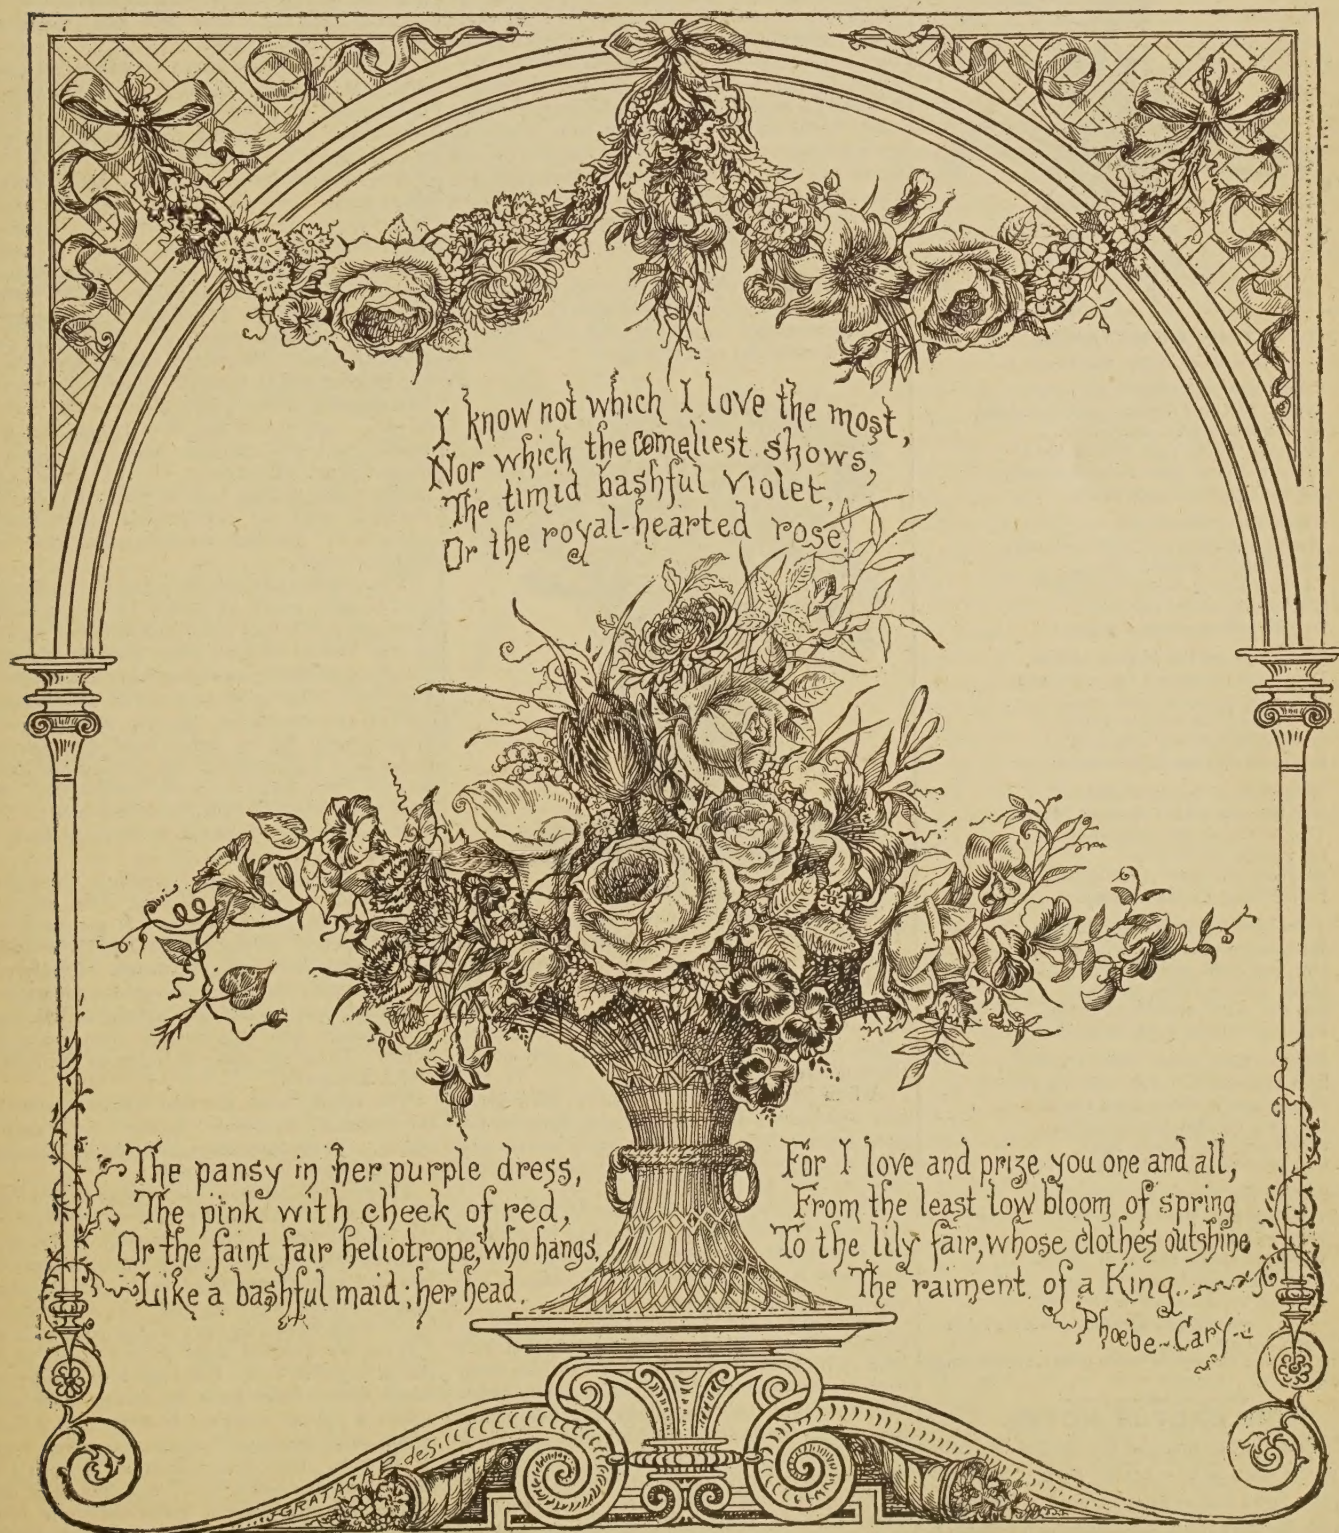 I know not which I love the most,
Nor which the comeliest shows,
The timid bashful violet,
Or the royal-hearted rose
The pansy in her purple dress,
The pink with cheek of red,
Or the faint fair heliotrope, who hangs,
Like a bashful maid; her head.
For I love and prize you one and all,
From the least low bloom of spring
To the lily fair, whose clothes outshine
The raiment of a King.
Phoebe-Cary-
GRATACAP des.